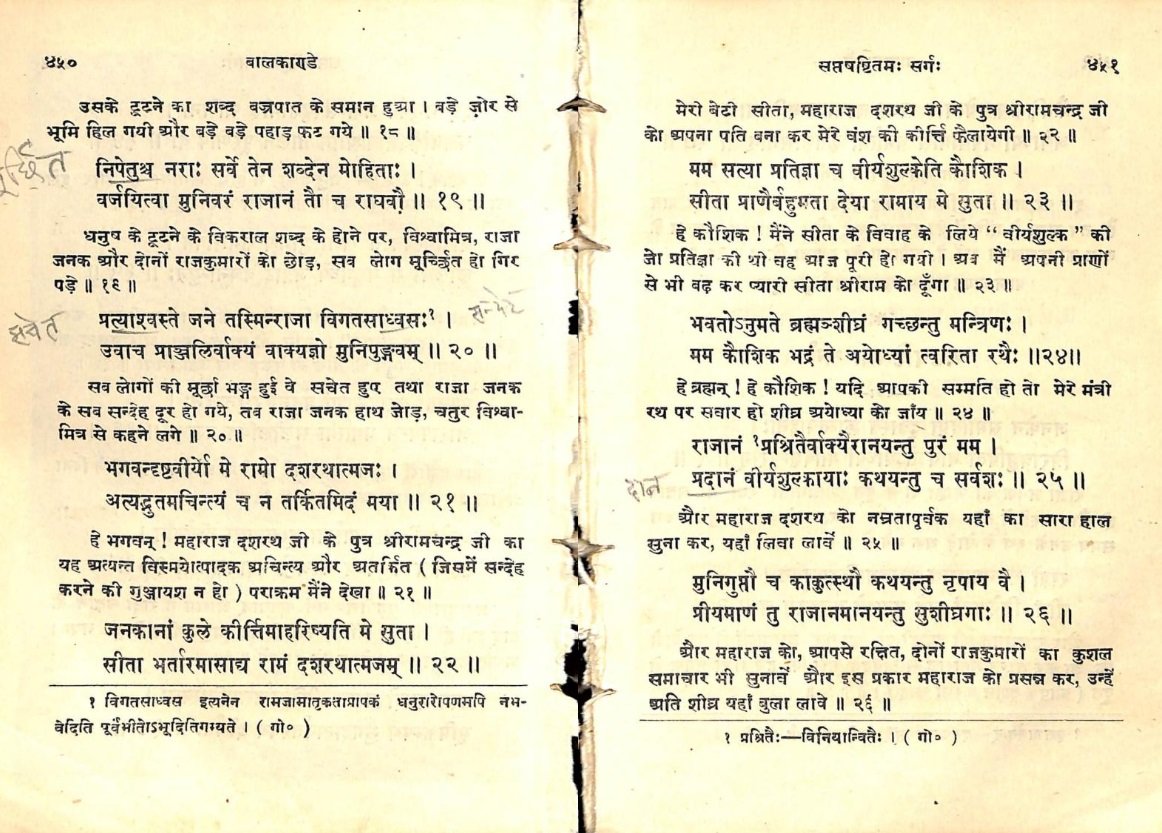 ४५० बालकाण्डे
उसके टूटने का शब्द वज्रपात के समान हुआ । बड़े ज़ोर से
भूमि हिल गयी और बड़े बड़े पहाड़ फट गये ॥ १८ ॥
निपेतुश्च नराः सर्वे तेन शब्देन मोहिताः ।
वर्जयित्वा मुनिवरं राजानं तौ च राघवौ ॥ १९ ॥
धनुष के टूटने के विकराल शब्द के होने पर, विश्वामित्र, राजा
जनक और दोनों राजकुमारों को छोड़, सब लोग मूर्च्छित हो गिर
पड़े ॥ १९ ॥
सचेत
प्रत्याश्वस्ते जने तस्मिन्राजा विगतसाध्वसः¹ ।
उवाच प्राञ्जलिर्वाक्यं वाक्यज्ञो मुनिपुङ्गवम् ॥ २० ॥
सब लोगों की मूर्छा भङ्ग हुई वे सचेत हुए तथा राजा जनक
के सब सन्देह दूर हो गये, तब राजा जनक हाथ जोड़, चतुर विश्वा-
मित्र से कहने लगे ॥ २० ॥
भगवन्दृष्टवीर्यो मे रामो दशरथात्मजः ।
अत्यद्भुतमचिन्त्यं च न तर्कितमिदं मया ॥ २१ ॥
हे भगवन् ! महाराज दशरथ जी के पुत्र श्रीरामचन्द्र जी का
यह अत्यन्त विस्मयोत्पादक अचिन्त्य और अतर्कित ( जिसमें सन्देह
करने की गुञ्जायश न हो ) पराक्रम मैंने देखा ॥ २१ ॥
जनकानां कुले कीर्त्तिमाहरिष्यति मे सुता ।
सीता भर्तारमासाद्य रामं दशरथात्मजम् ॥ २२ ॥
१ विगतसाध्वस इत्यनेन रामजामातृकताप्रापकं धनुरारोपणमपि नभ-
वेदिति पूर्वंभीतोऽभूदितिगम्यते । ( गो० )
सप्तषष्टितमः सर्गः ४५१
मेरी बेटी सीता, महाराज दशरथ जी के पुत्र श्रीरामचन्द्र जी
को अपना पति बना कर मेरे वंश की कीर्त्ति फैलायेगी ॥ २२ ॥
मम सत्या प्रतिज्ञा च वीर्यशुल्केति कौशिक ।
सीता प्राणैर्बहुमता देया रामाय मे सुता ॥ २३ ॥
हे कौशिक ! मैंने सीता के विवाह के लिये “ वीर्यशुल्क ” की
जो प्रतिज्ञा की थी वह आज पूरी हो गयी । अब मैं अपनी प्राणों
से भी बढ़ कर प्यारी सीता श्रीराम को दूँगा ॥ २३ ॥
भवतोऽनुमते ब्रह्मञ्शीघ्रं गच्छन्तु मन्त्रिणः ।
मम कौशिक भद्रं ते अयोध्यां त्वरिता रथैः ॥२४॥
हे ब्रह्मन् ! हे कौशिक ! यदि आपकी सम्मति हो तो मेरे मंत्री
रथ पर सवार हो शीघ्र अयोध्या को जाँय ॥ २४ ॥
राजानं ¹प्रश्रितैर्वाक्यैरानयन्तु पुरं मम ।
दान
प्रदानं वीर्यशुल्कायाः कथयन्तु च सर्वशः ॥ २५ ॥
और महाराज दशरथ को नम्रतापूर्वक यहाँ का सारा हाल
सुना कर, यहाँ लिवा लावें ॥ २५ ॥
मुनिगुप्तौ च काकुत्स्थौ कथयन्तु नृपाय वै ।
प्रीयमाणं तु राजानमानयन्तु सुशीघ्रगाः ॥ २६ ॥
और महाराज को, आपसे रक्षित, दोनों राजकुमारों का कुशल
समाचार भी सुनावें और इस प्रकार महाराज को प्रसन्न कर, उन्हें
अति शीघ्र यहाँ बुला लावे ॥ २६ ॥
१ प्रश्रितैः—विनियान्वितैः । ( गो० )